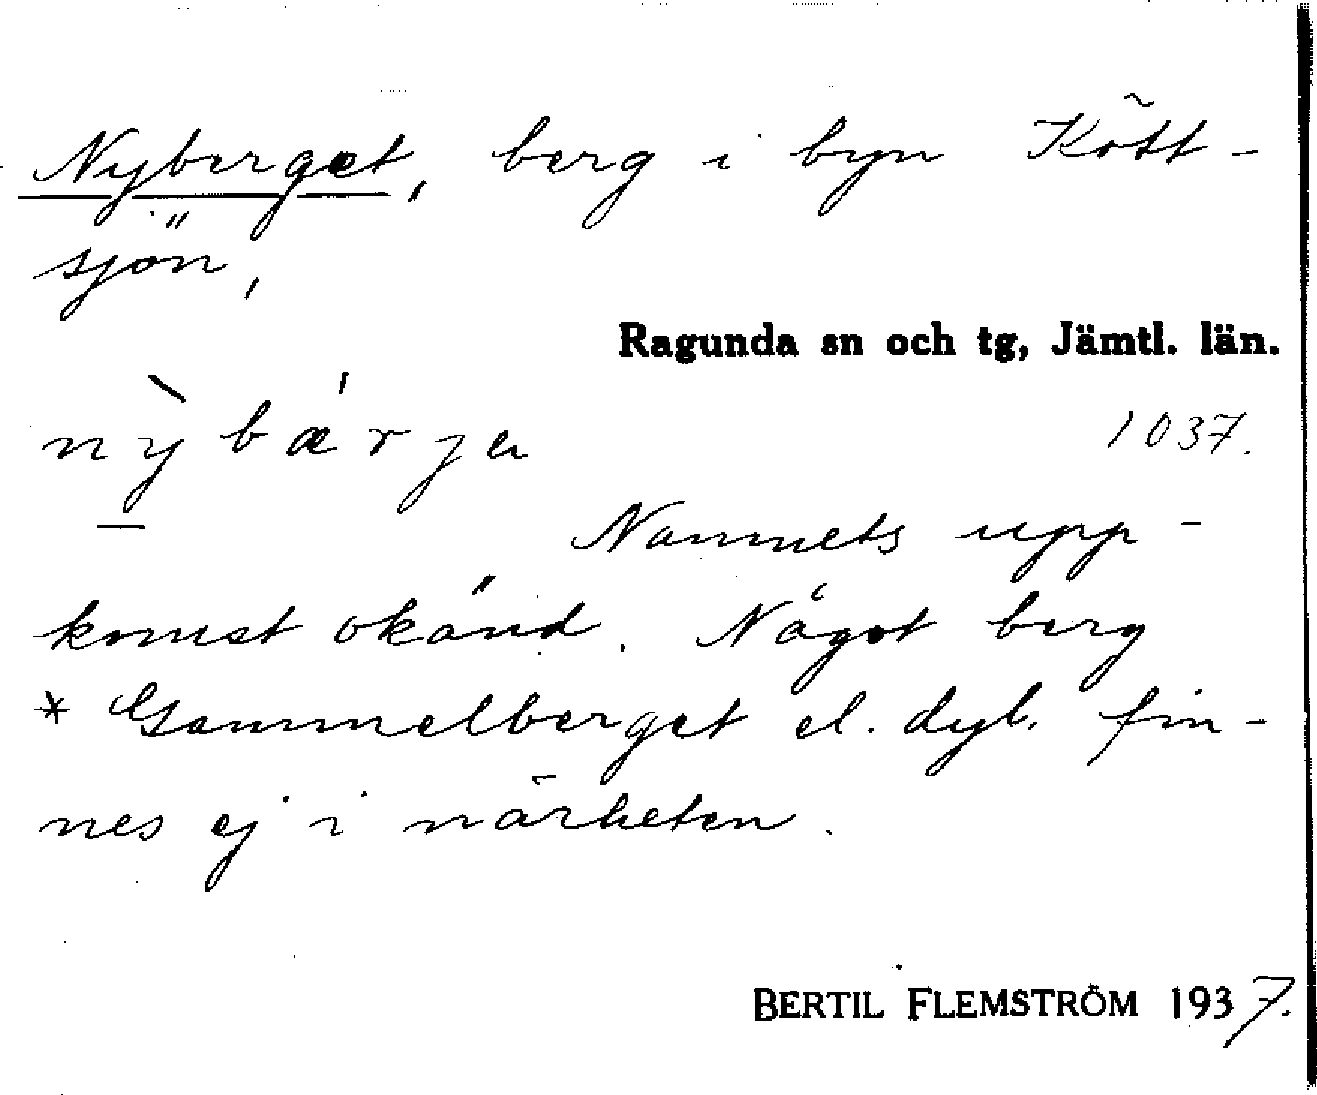 Nyberget, berg i byn Kött-
sjön,
Ragunda sn och tg, Jämtl. län.
nỳ̱bǽrjɐ
1037.
Namnets upp-
komst okänd. Något berg
* Gammelberget el. dyl. fin-
nes ej i närheten.
BERTIL FLEMSTRÖM 1937.